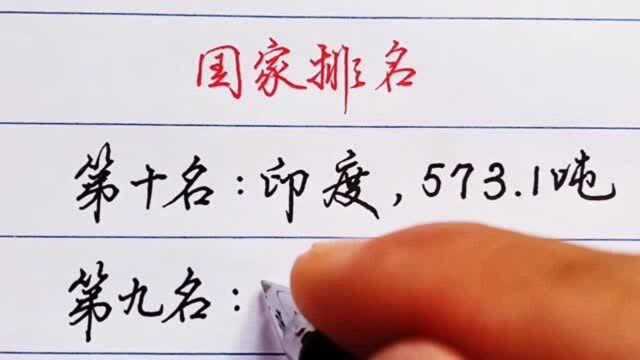 国家排名
第十名:印度,573.1吨
第九名: